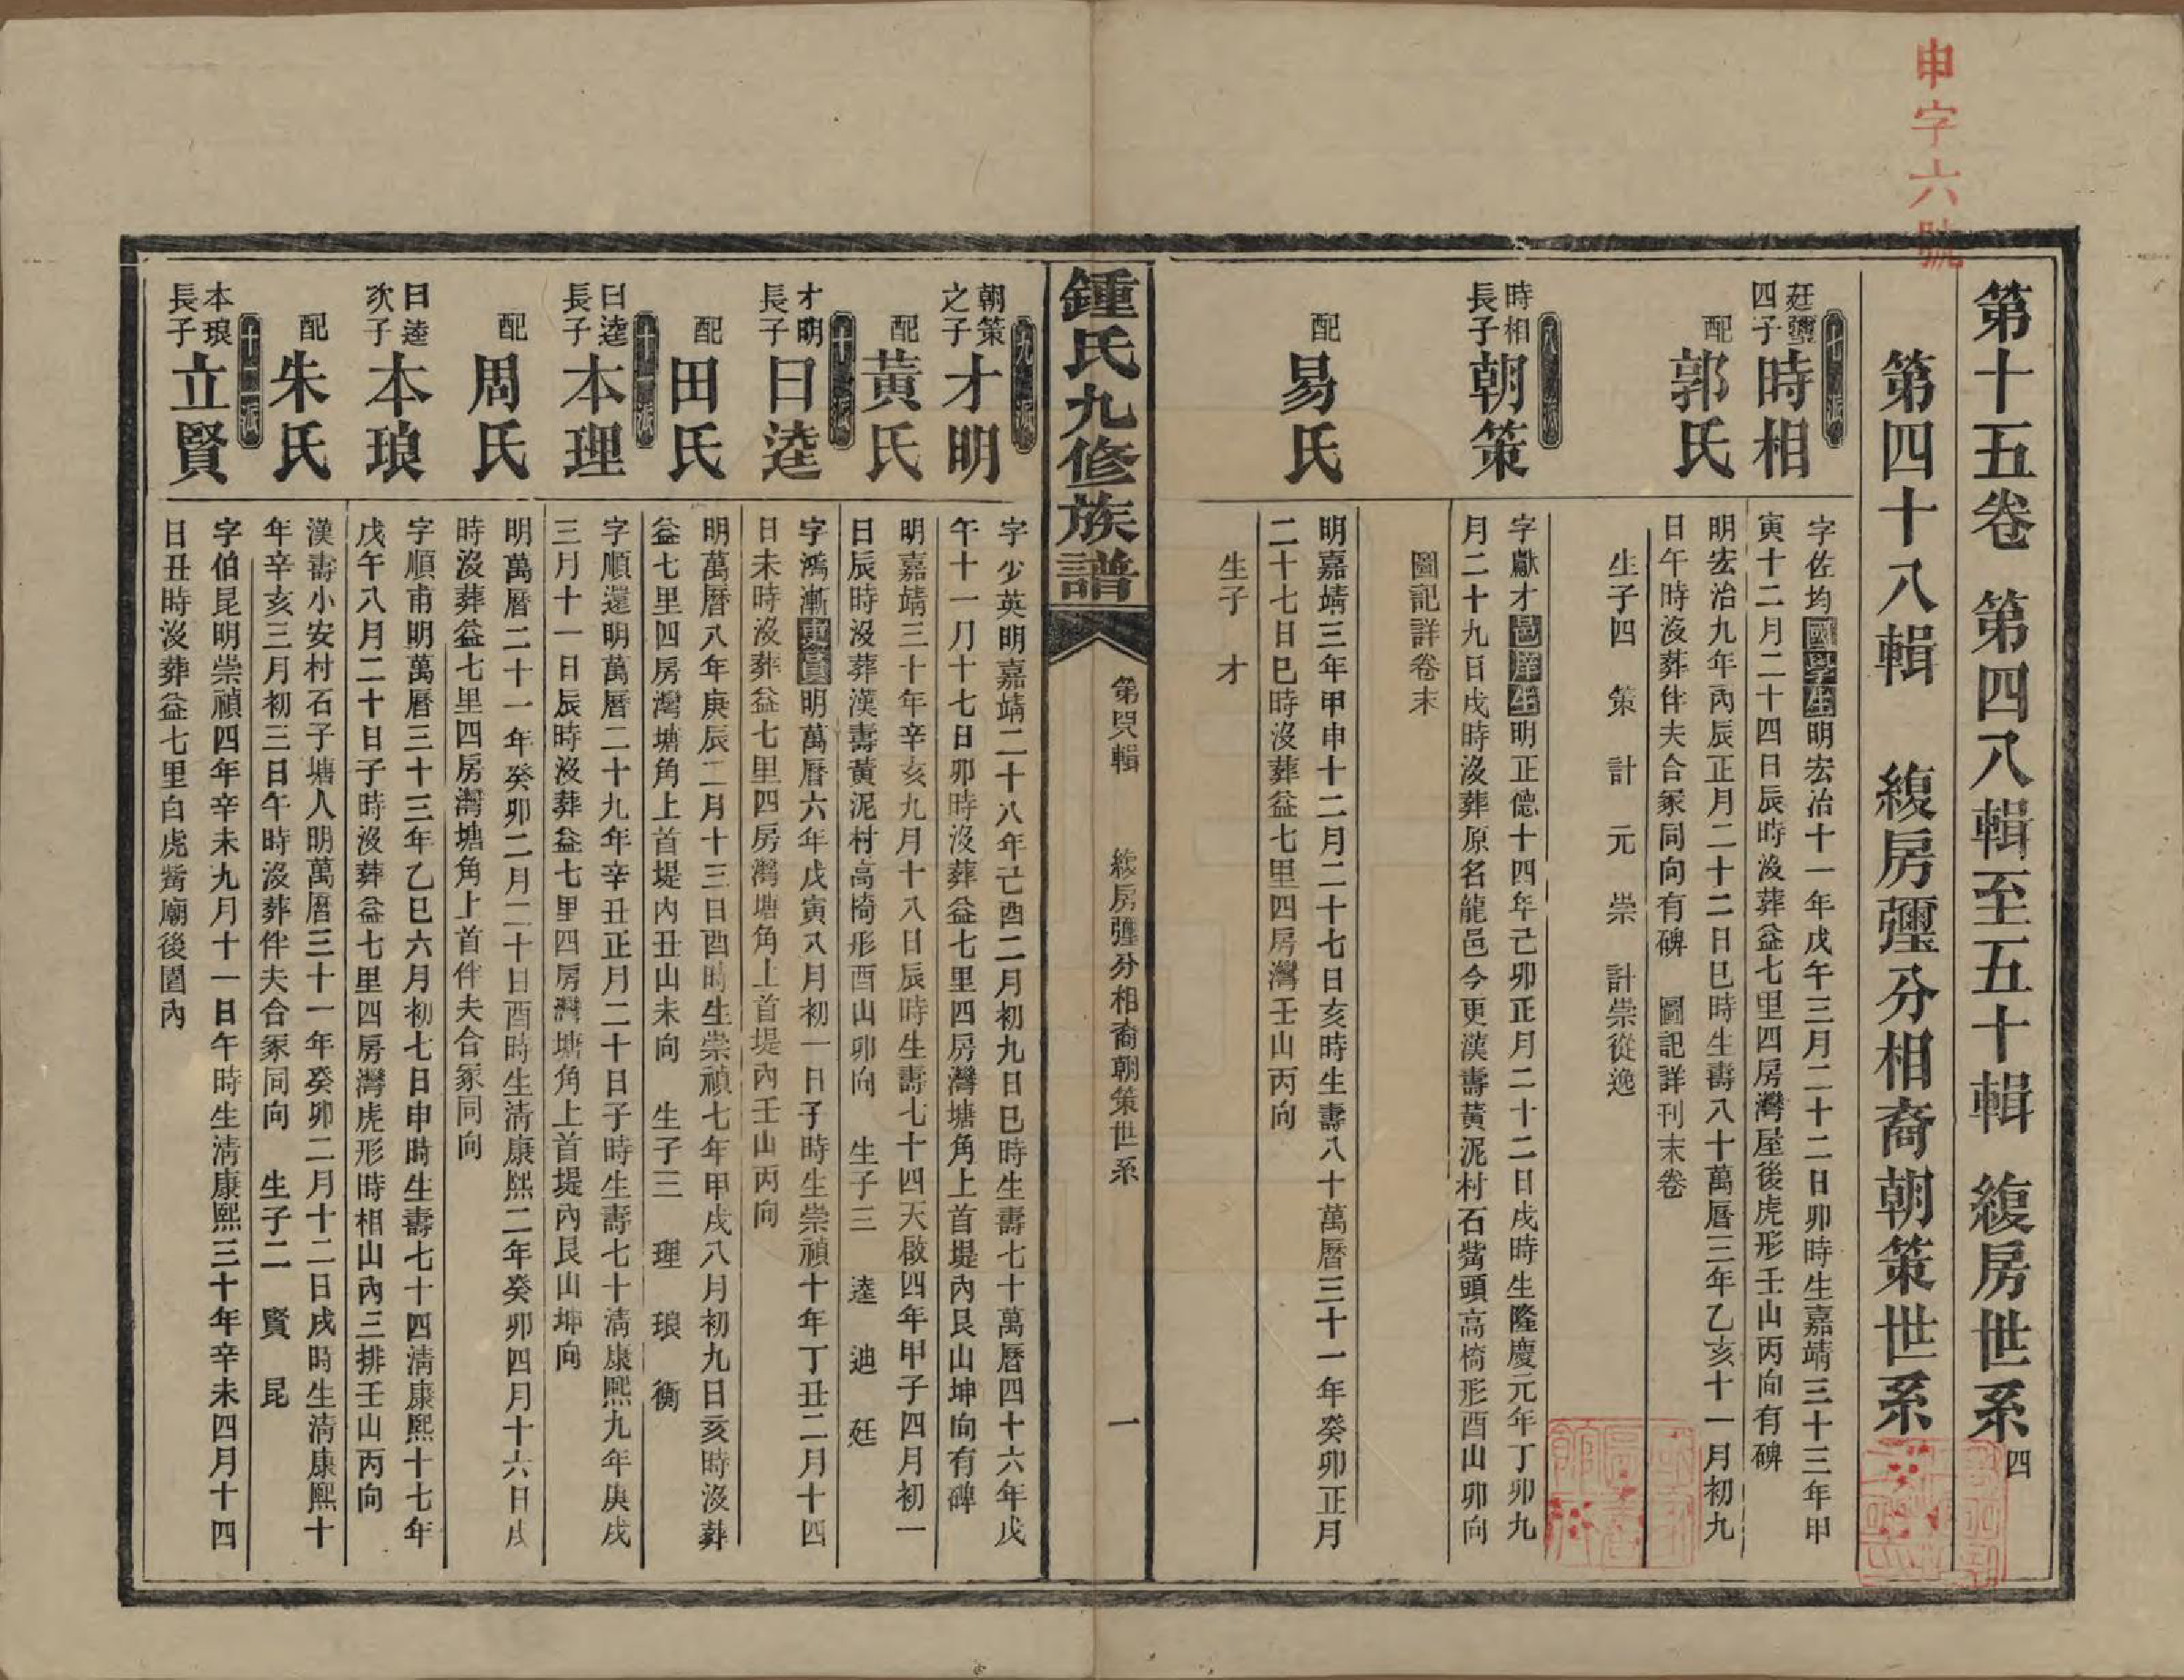 申字六號
第十五卷　第四八輯至五十輯　緮房世系四
第四十八輯　緮房彊分相裔朝策世系
七派
廷彊四子時相
字佐均國學生明宏治十一年戊午三月二十二日卯時生嘉靖三十三年甲
寅十二月二十四日辰時沒葬益七里四房灣屋後虎形壬山丙向有碑
配郭氏
明宏治九年丙辰正月二十二日巳時生壽八十萬曆三年乙亥十一月初九
日午時沒葬伴夫合冢同向有碑　圖記詳刊末卷
生子四　策　計　元　崇　計崇從逸
八派
時相長子朝策
字獻才邑庠生明正德十四年己卯正月二十二日戌時生隆慶元年丁卯九
月二十九日戌時沒葬原名龍邑今更漢壽黃泥村石觜頭高椅形酉山卯向
圖記詳卷末
配易氏
明嘉靖三年甲申十二月二十七日亥時生壽八十萬曆三十一年癸卯正月
二十七日巳時沒葬益七里四房灣壬山丙向
生子　才
鍾氏九修族譜
第四八輯　緮房彊分相裔朝策世系　一
九派
朝策之子才明
字少英明嘉靖二十八年己酉二月初九日巳時生壽七十萬曆四十六年戊
午十一月十七日卯時沒葬益七里四房灣塘角上首堤內艮山坤向有碑
配黃氏
明嘉靖三十年辛亥九月十八日辰時生壽七十四天啟四年甲子四月初一
日辰時沒葬漢壽黃泥村高椅形酉山卯向　生子三　逵　迪　廷
十派
才明長子曰逵
字鴻漸明萬曆六年戊寅八月初一日子時生崇禎十年丁丑二月十四
日未時沒葬益七里四房灣塘角上首堤內壬山丙向
配田氏
明萬曆八年庚辰二月十三日酉時生崇禎七年甲戌八月初九日亥時沒葬
益七里四房灣塘角上首堤內丑山未向　生子三　理　琅　衡
十一派
曰逵長子本理
字順還明萬曆二十九年辛丑正月二十日子時生壽七十清康熙九年庚戌
三月十一日辰時沒葬益七里四房灣塘角上首堤內艮山坤向
配周氏
明萬曆二十一年癸卯二月二十日酉時生清康熙二年癸卯四月十六日戌
時沒葬益七里四房灣塘角上首伴夫合冢同向
曰逵次子本琅
字順甫明萬曆三十三年乙巳六月初七日申時生壽七十四清康熙十七年
戊午八月二十日子時沒葬益七里四房灣虎形時相山內三排壬山丙向
配朱氏
漢壽小安村石子塘人明萬曆三十一年癸卯二月十二日戌時生清康熙十
年辛亥三月初三日午時沒葬伴夫合冢同向　生子二　賢　昆
十二派
本琅長子立賢
字伯昆明崇禎四年辛未九月十一日午時生清康熙三十年辛未四月十四
日丑時沒葬益七里白虎觜廟後園內